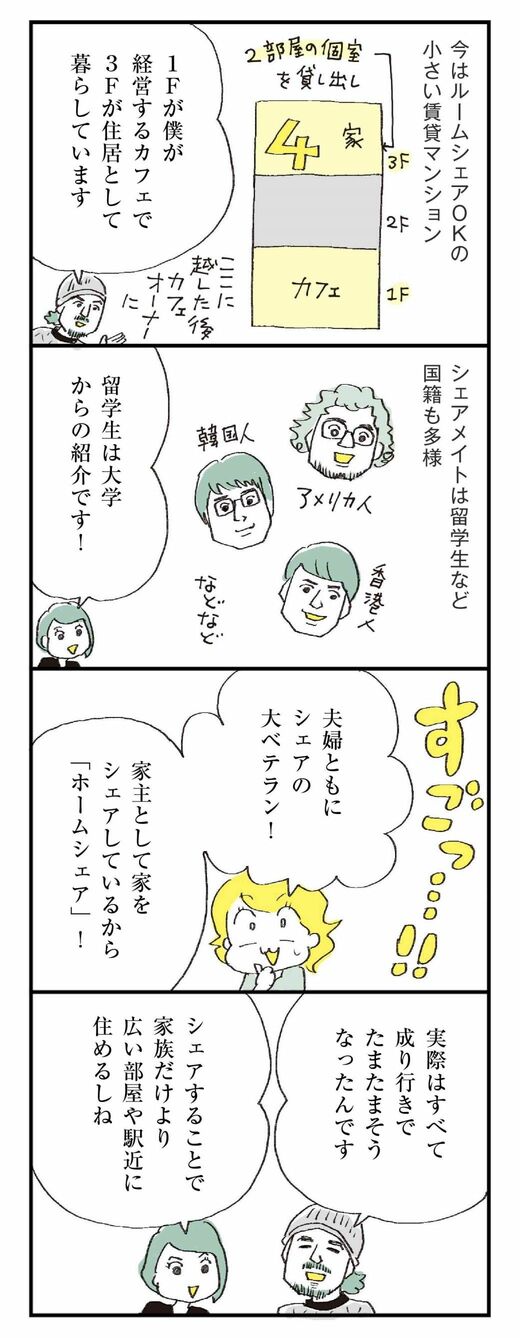 今はルームシェアOKの
小さい賃貸マンション
2部屋の個室
を貸し出し
4
家
3F
2F
カフェ
1F
1Fが僕が
経営するカフェで
3Fが住居として
暮らしています
ここに
越した後
カフェ
オーナー
に
シェアメイトは留学生など
国籍も多様
アメリカ人
韓国人
香港人
などなど
留学生は大学
からの紹介です!
すごっ…!!
夫婦ともに
シェアの
大ベテラン!
家主として家を
シェアしているから
「ホームシェア」!
実際はすべて
成り行きで
たまたまそう
なったんです
シェアすることで
家族だけより
広い部屋や駅近に
住めるしね